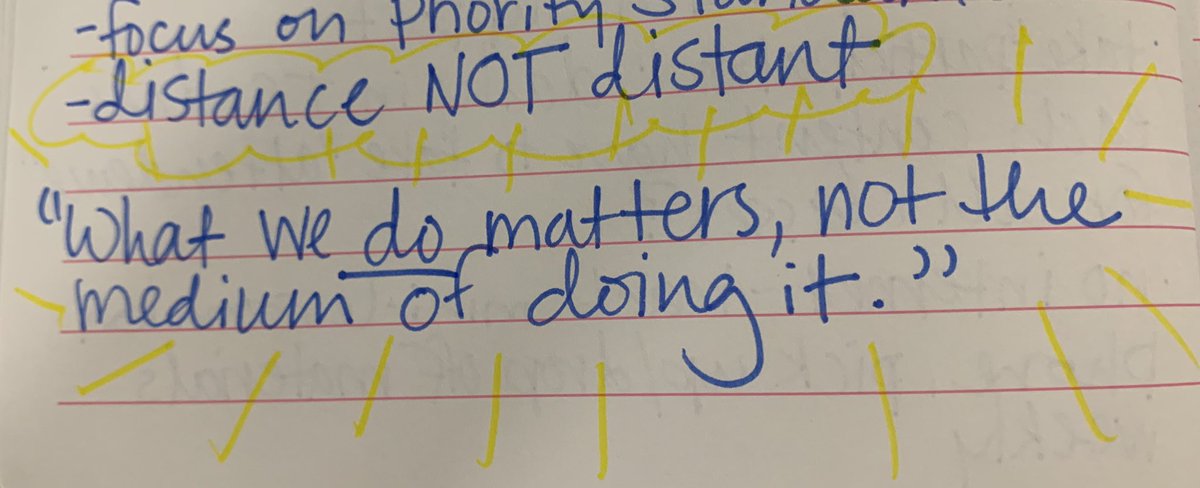 -focus on Priority
-distance NOT distant
"What we do matters, not the
medium of doing it."